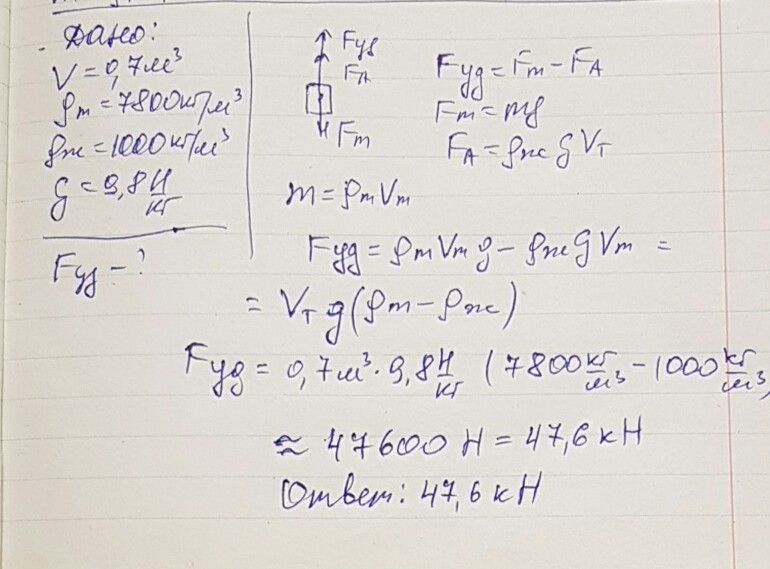 Дано:
V = 0,7 м³
ρт = 7800 кг/м³
ρж = 1000 кг/м³
g = 9,8 Н/кг
Fуд – ?
Fуд
FА
Fт
Fуд = Fт – FА
Fт = mg
FА = ρж g Vт
m = ρт Vт
Fуд = ρт Vт g – ρж g Vт =
= Vт g (ρт – ρж)
Fуд = 0,7 м³ · 9,8 Н/кг (7800 кг/м³ – 1000 кг/м³)
≈ 47600 Н = 47,6 кН
Ответ: 47,6 кН